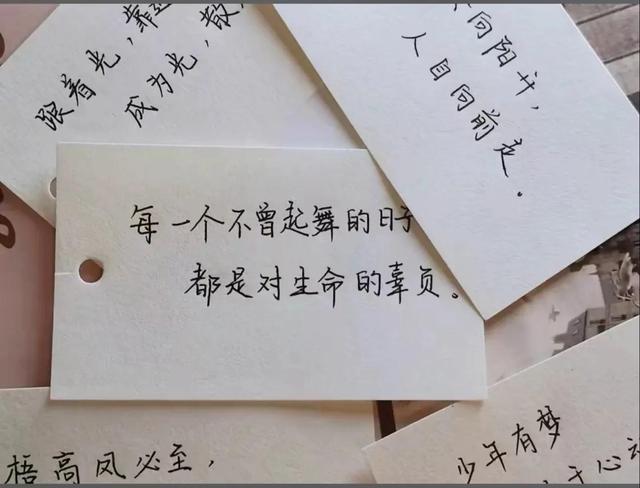 跟着光，靠
成为光，散
向阳升，
人自向前走。
每一个不曾起舞的日子
都是对生命的辜负。
梧高凤必至，
少年有梦
于心